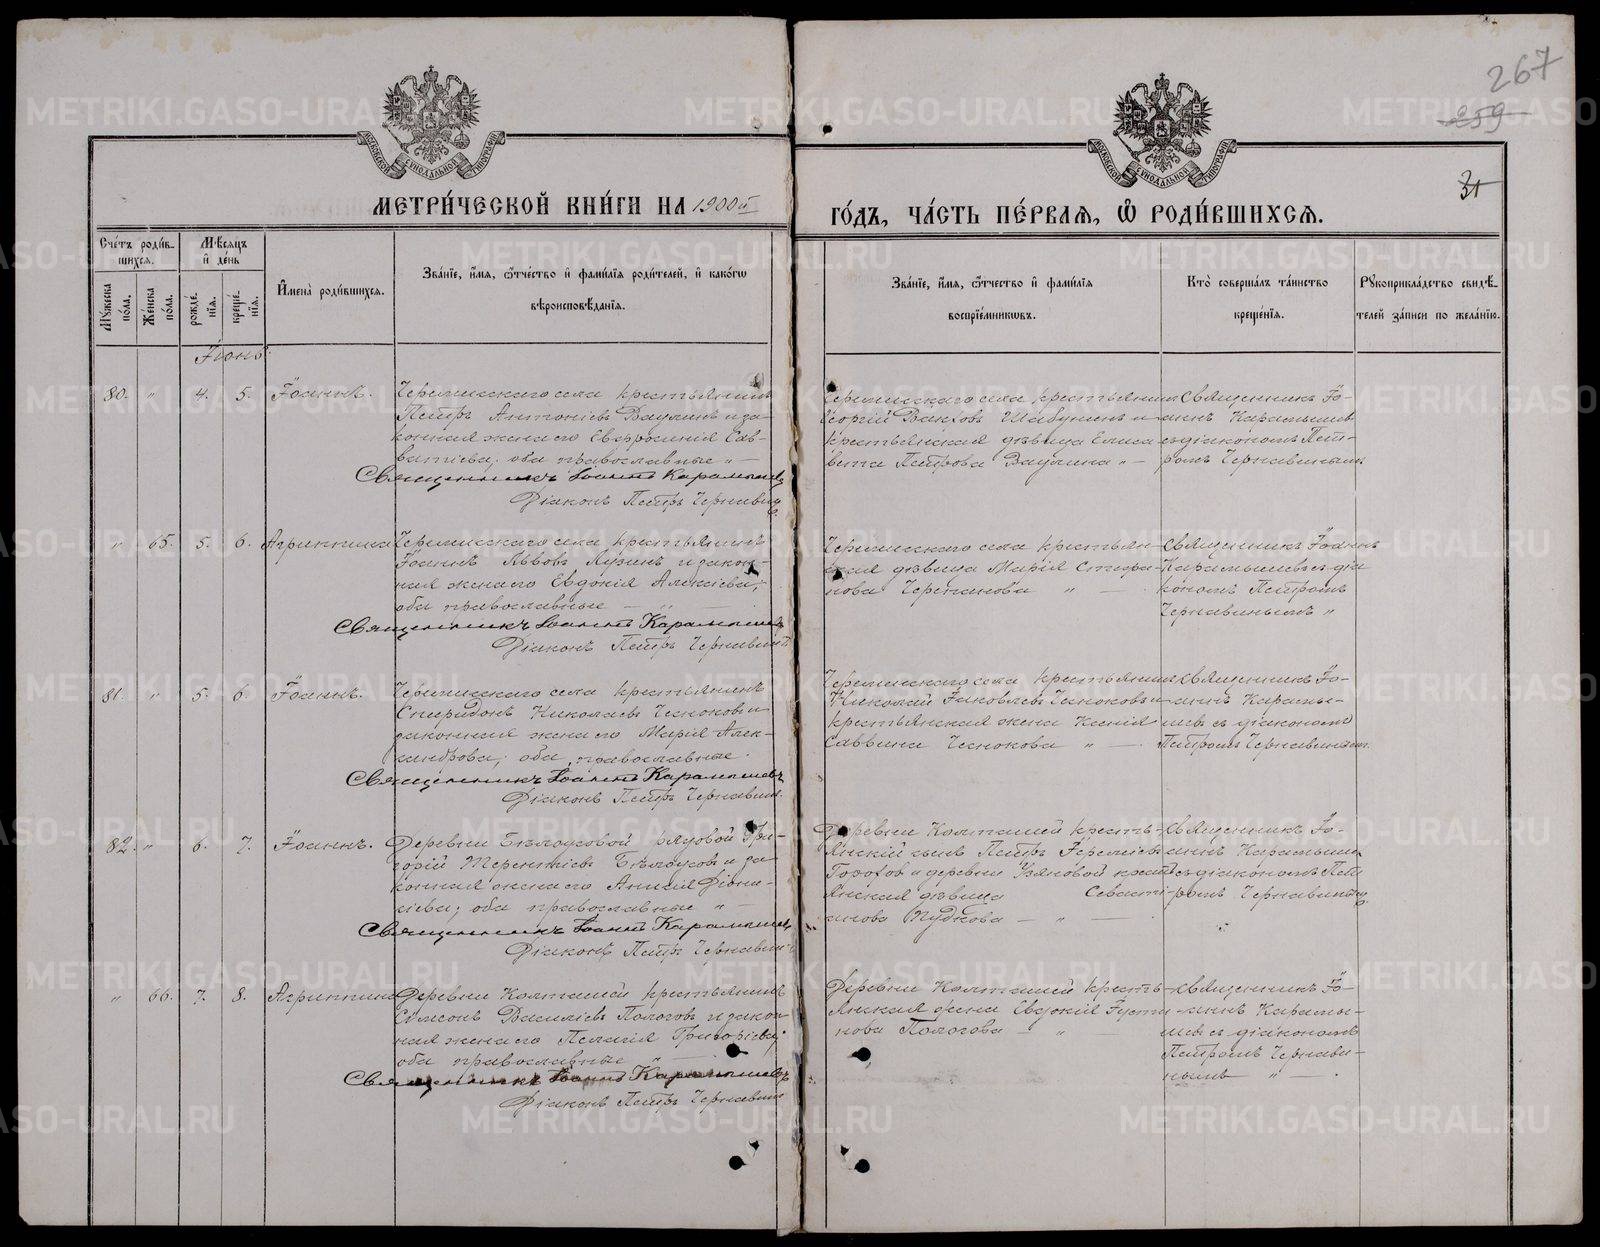 267
259
31
МОСКОВСКОЙ СѴНОДАЛЬНОЙ ТИПОГРАФІИ
МОСКОВСКОЙ СѴНОДАЛЬНОЙ ТИПОГРАФІИ
МЕТРИ́ЧЕСКОЙ КНИ́ГИ НА 1900й
ГО́ДЪ, ЧА́СТЬ ПЕ́РВАЯ, Ѽ РОДИ́ВШИХСЯ.
Сче́тъ роди́в-
шихся.
Мꙋ́жеска по́ла.
Же́нска по́ла.
Мѣ́сяцъ и҆ де́нь
рожде́нїя.
креще́нїя.
И҆мена̀ роди́вшихся.
Зва́нїе, и҆́мя, ѻ҆́тчество и҆ фами́лїя роди́телей, и҆ како́гѡ
вѣроисповѣ́данїя.
Зва́нїе, и҆́мя, ѻ҆́тчество и҆ фами́лїя
воспрїе́мникѡвъ.
Кто̀ соверша́лъ та́инство
креще́нїя.
Рꙋкоприкла́дство свидѣ́-
телей за́писи по жела́нїю.
Іюнь.
80. " 4. 5. Іоаннъ.
Черемисскаго села крестьянинъ
Петръ Антоніевъ Ваулинъ и за-
конная жена его Евфросинія Сав-
ватіева; оба православные " —
Священникъ Іоаннъ Карамышевъ
Діаконъ Петръ Чернавинъ
Черемисскаго села крестьянинъ
Георгій Вакховъ Шабунинъ и
крестьянская дѣвица Елиса-
вета Петрова Ваулина " —
Священникъ Іо-
аннъ Карамышевъ
съ діакономъ Пет-
ромъ Чернавинымъ
" 65. 5. 6. Агриппина
Черемисскаго села крестьянинъ
Іоаннъ Львовъ Лузинъ и закон-
ная жена его Евдокія Алексіева;
оба православные — " —
Священникъ Іоаннъ Карамышевъ
Діаконъ Петръ Чернавинъ
Черемисскаго села крестьян-
ская дѣвица Марія Стефа-
нова Черепанова " —
Священникъ Іоаннъ
Карамышевъ съ діа-
кономъ Петромъ
Чернавинымъ "
81. " 5. 6. Іоаннъ.
Черемисскаго села крестьянинъ
Спиридонъ Николаевъ Чесноковъ и
законная жена его Марія Алек-
сандрова; оба православные.
Священникъ Іоаннъ Карамышевъ
Діаконъ Петръ Чернавинъ.
Черемисскаго села крестьянинъ
Николай Іаковлевъ Чесноковъ и
крестьянская жена Ксенія
Саввина Чеснокова " —
Священникъ Іо-
аннъ Карамы-
шевъ съ діакономъ
Петромъ Чернавинымъ.
82. " 6. 7. Іоаннъ.
Деревни Бѣлоусовой рядовой Гри-
горій Терентіевъ Бѣлоусовъ и за-
конная жена его Анисія Діони-
сіева; оба православные " —
Священникъ Іоаннъ Карамышевъ
Діаконъ Петръ Чернавинъ
Деревни Колташей кресть-
янскій сынъ Петръ Іереміевъ
и деревни Узяновой кресть-
янская дѣвица Севасті-
анова Пудкова — " —
Священникъ Іо-
аннъ Карамышевъ
съ діакономъ Пет-
ромъ Чернавинымъ
" 66. 7. 8. Агриппина
Деревни Колташей крестьянинъ
Симеонъ Василіевъ Пологовъ и закон-
ная жена его Пелагія Григоріева;
оба православные " —
Священникъ Іоаннъ Карамышевъ
Діаконъ Петръ Чернавинъ
Деревни Колташей кресть-
янская жена Евдокія Іусти-
нова Пологова — "
Священникъ Іо-
аннъ Карамы-
шевъ съ діакономъ
Петромъ Чернави-
нымъ " — .
METRIKI.GASO-URAL.RU